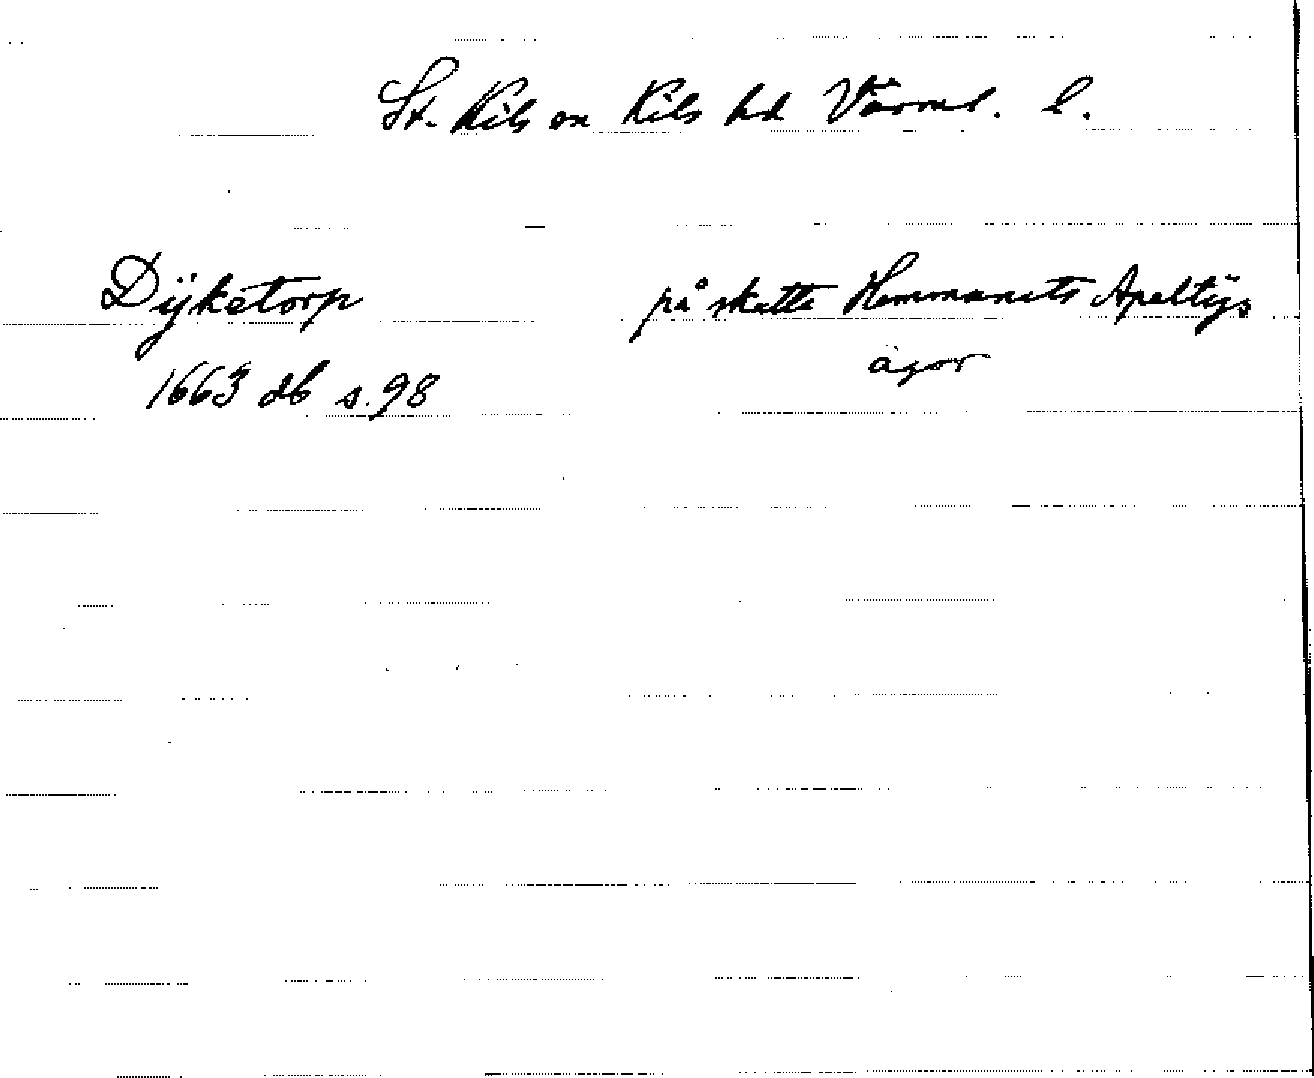 St. Kils sn Kils hd Värml. l.
Dÿketorp
på skatte Hemmanets Apeltÿs
ägor
1663 db s. 98